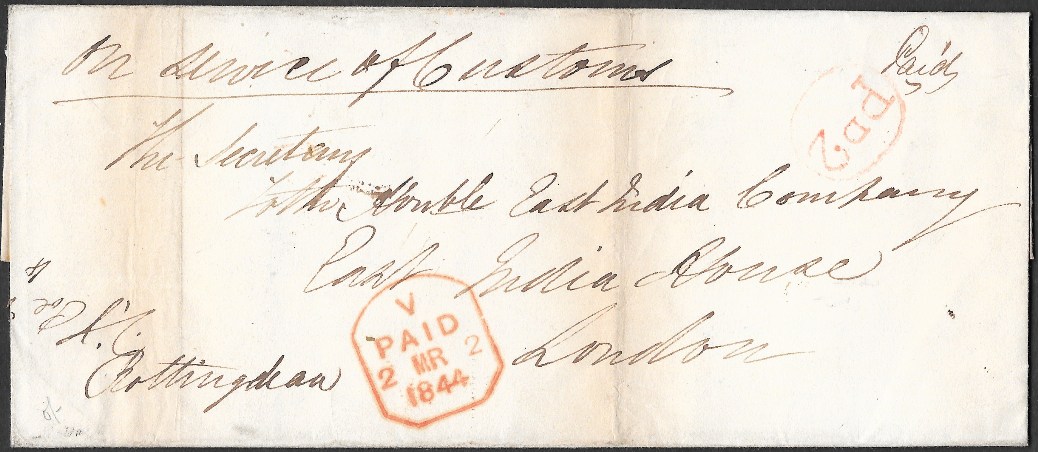 On Service of Customs
Paid
PD2
The Secretary
to the Honble East India Company
East India House
London
V
PAID
2 MR 2
1844
Rottingdean